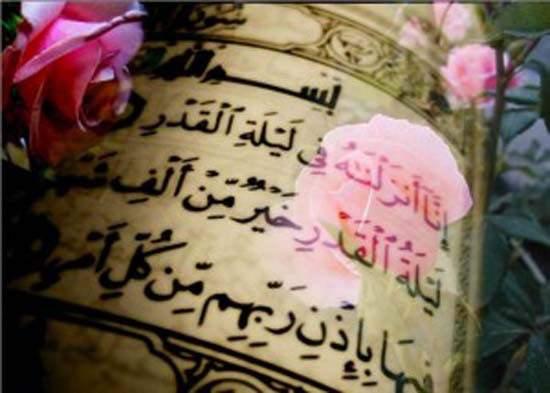 بِسْمِ ٱللَّهِ
إِنَّآ أَنزَلْنَٰهُ فِى لَيْلَةِ ٱلْقَدْرِ
لَيْلَةُ ٱلْقَدْرِ خَيْرٌ مِّنْ أَلْفِ
بِإِذْنِ رَبِّهِم مِّن كُلِّ أَمْرٍ